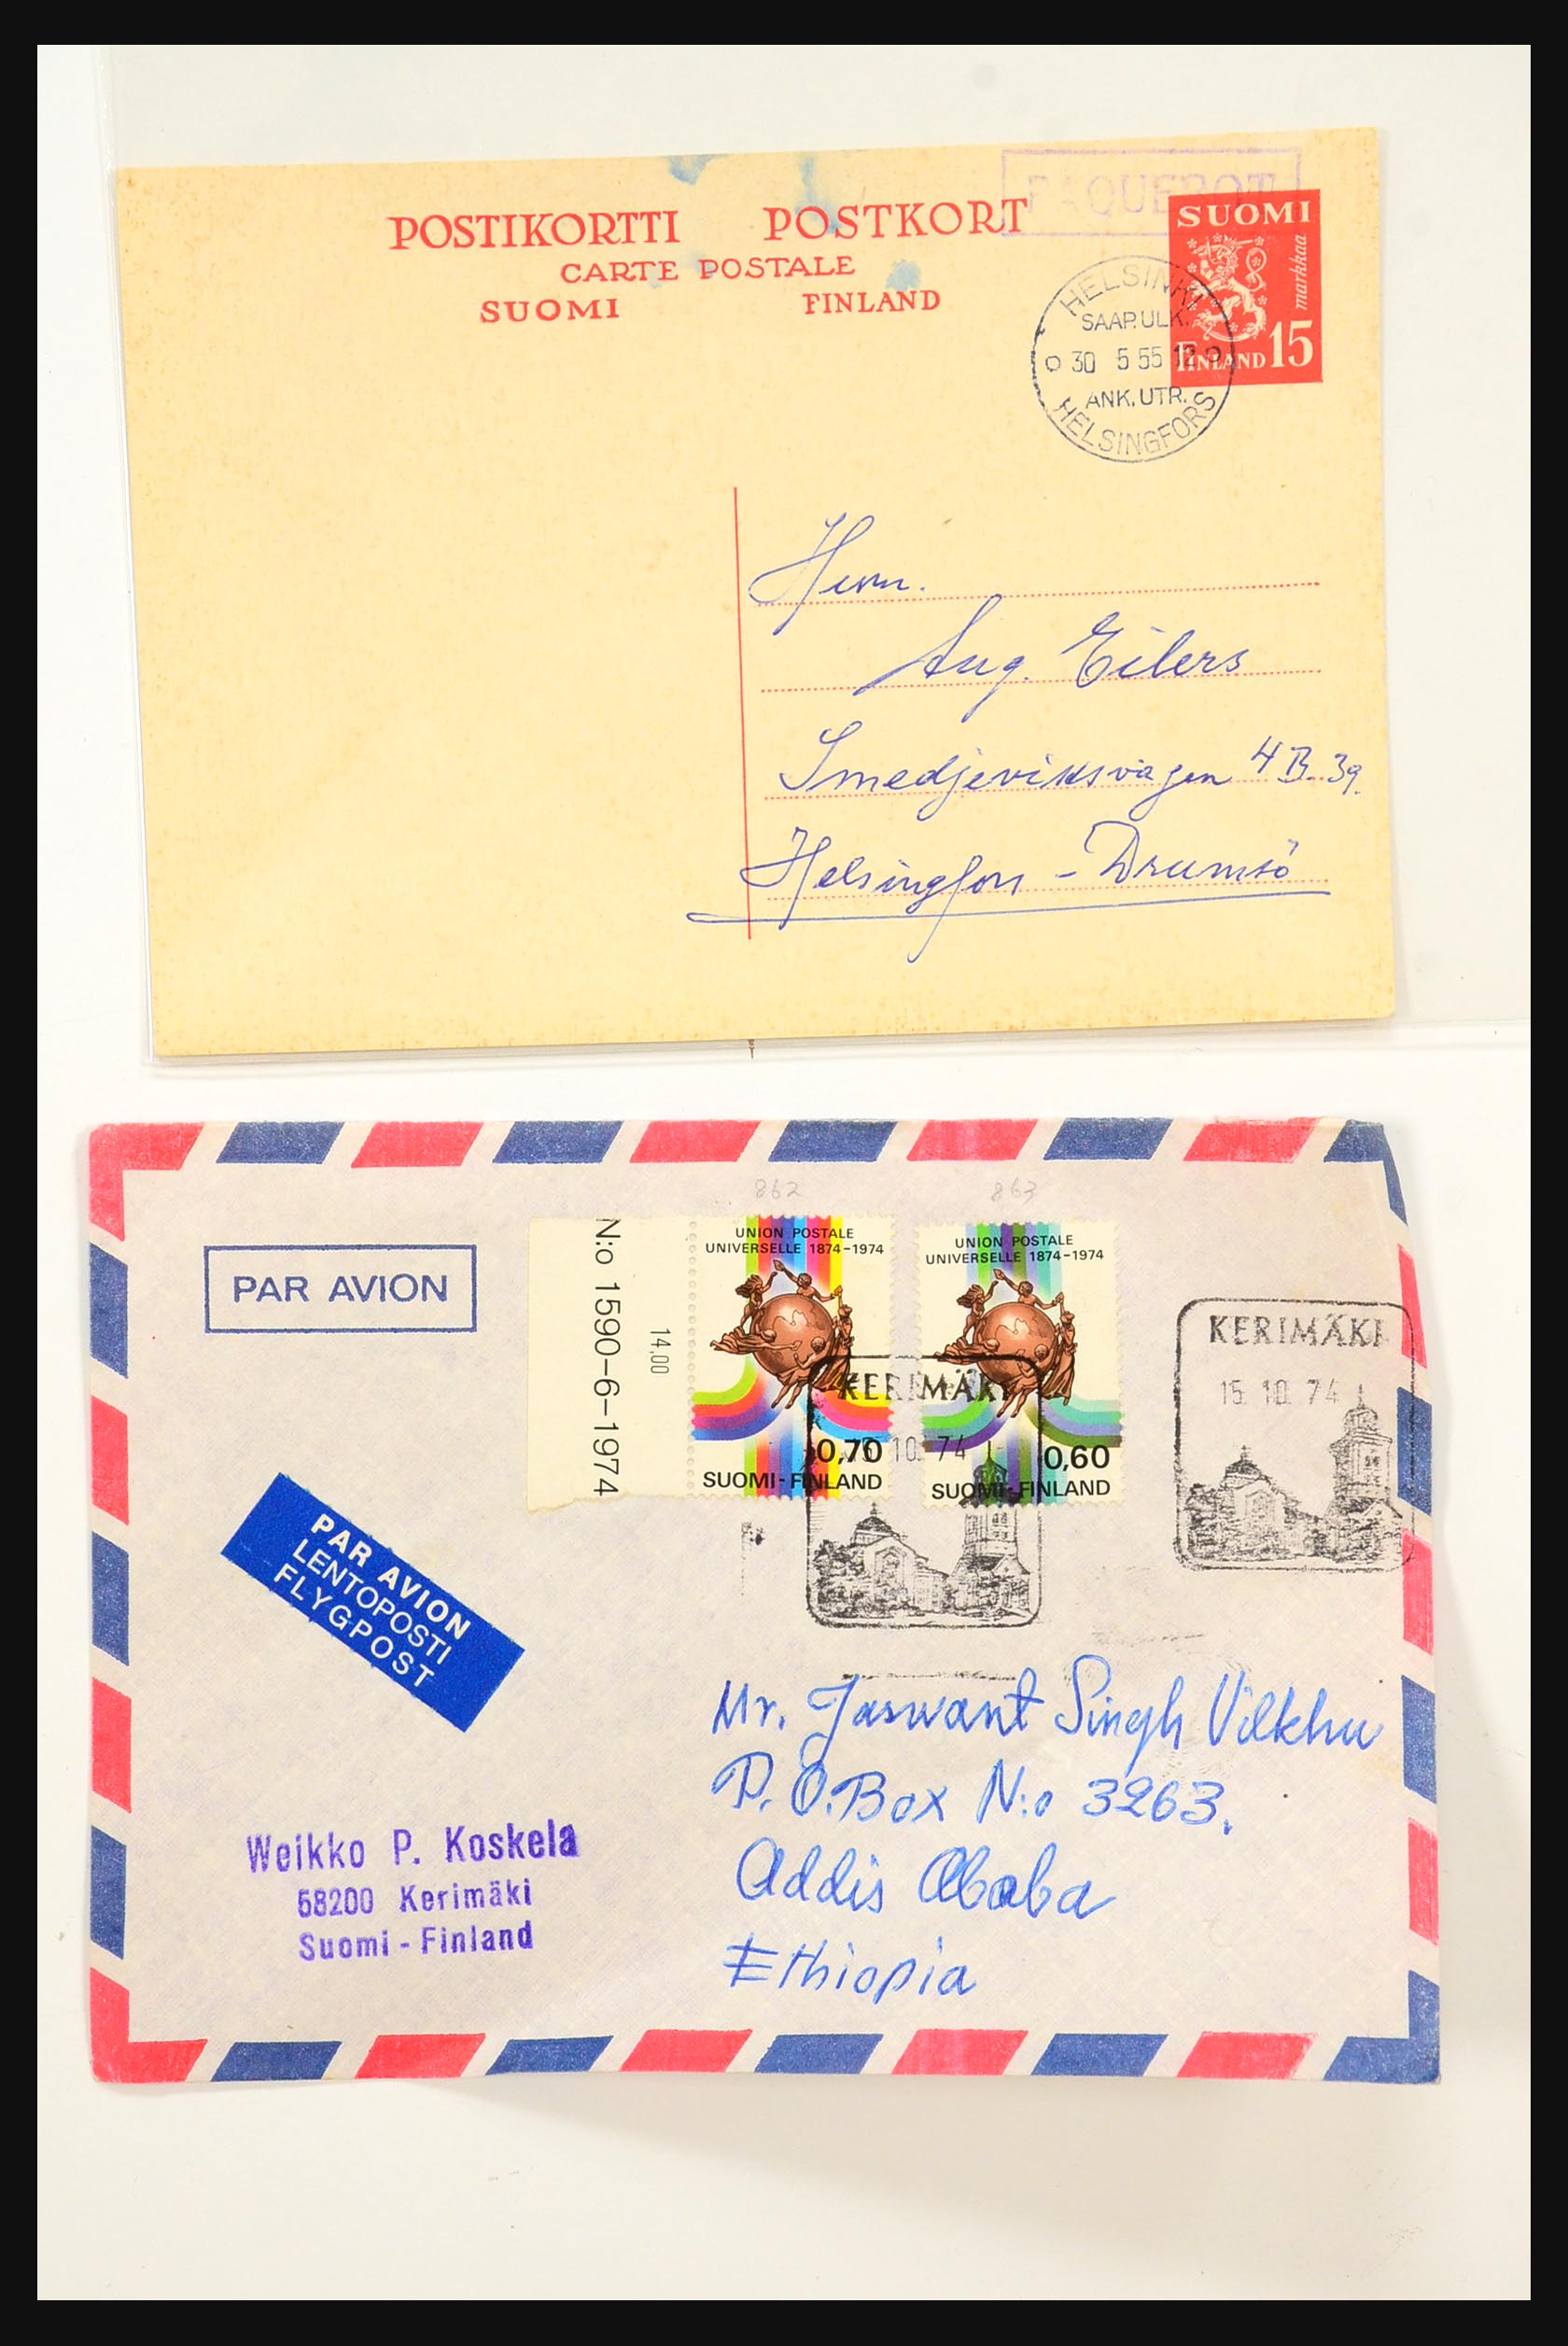 PAQUEBOT
POSTIKORTTI POSTKORT
CARTE POSTALE
SUOMI FINLAND
SUOMI
markkaa
FINLAND 15
HELSINKI
SAAP.ULK.
30 5 55 12
ANK.UTR.
HELSINGFORS
Herrn.
Aug. Eilers
Smedjeviksvägen 4 B. 39.
Helsingfors - Drumsö
862 863
PAR AVION
N:o 1590-6-1974
14,00
UNION POSTALE
UNIVERSELLE 1874-1974
0,70
SUOMI-FINLAND
UNION POSTALE
UNIVERSELLE 1874-1974
0,60
SUOMI-FINLAND
KERIMÄKI
15 10. 74
KERIMÄKI
15. 10. 74
PAR AVION
LENTOPOSTI
FLYGPOST
Mr. Jaswant Singh Vilkhu
P.O.Box N:o 3263.
Addis Ababa
Ethiopia
Weikko P. Koskela
58200 Kerimäki
Suomi - Finland